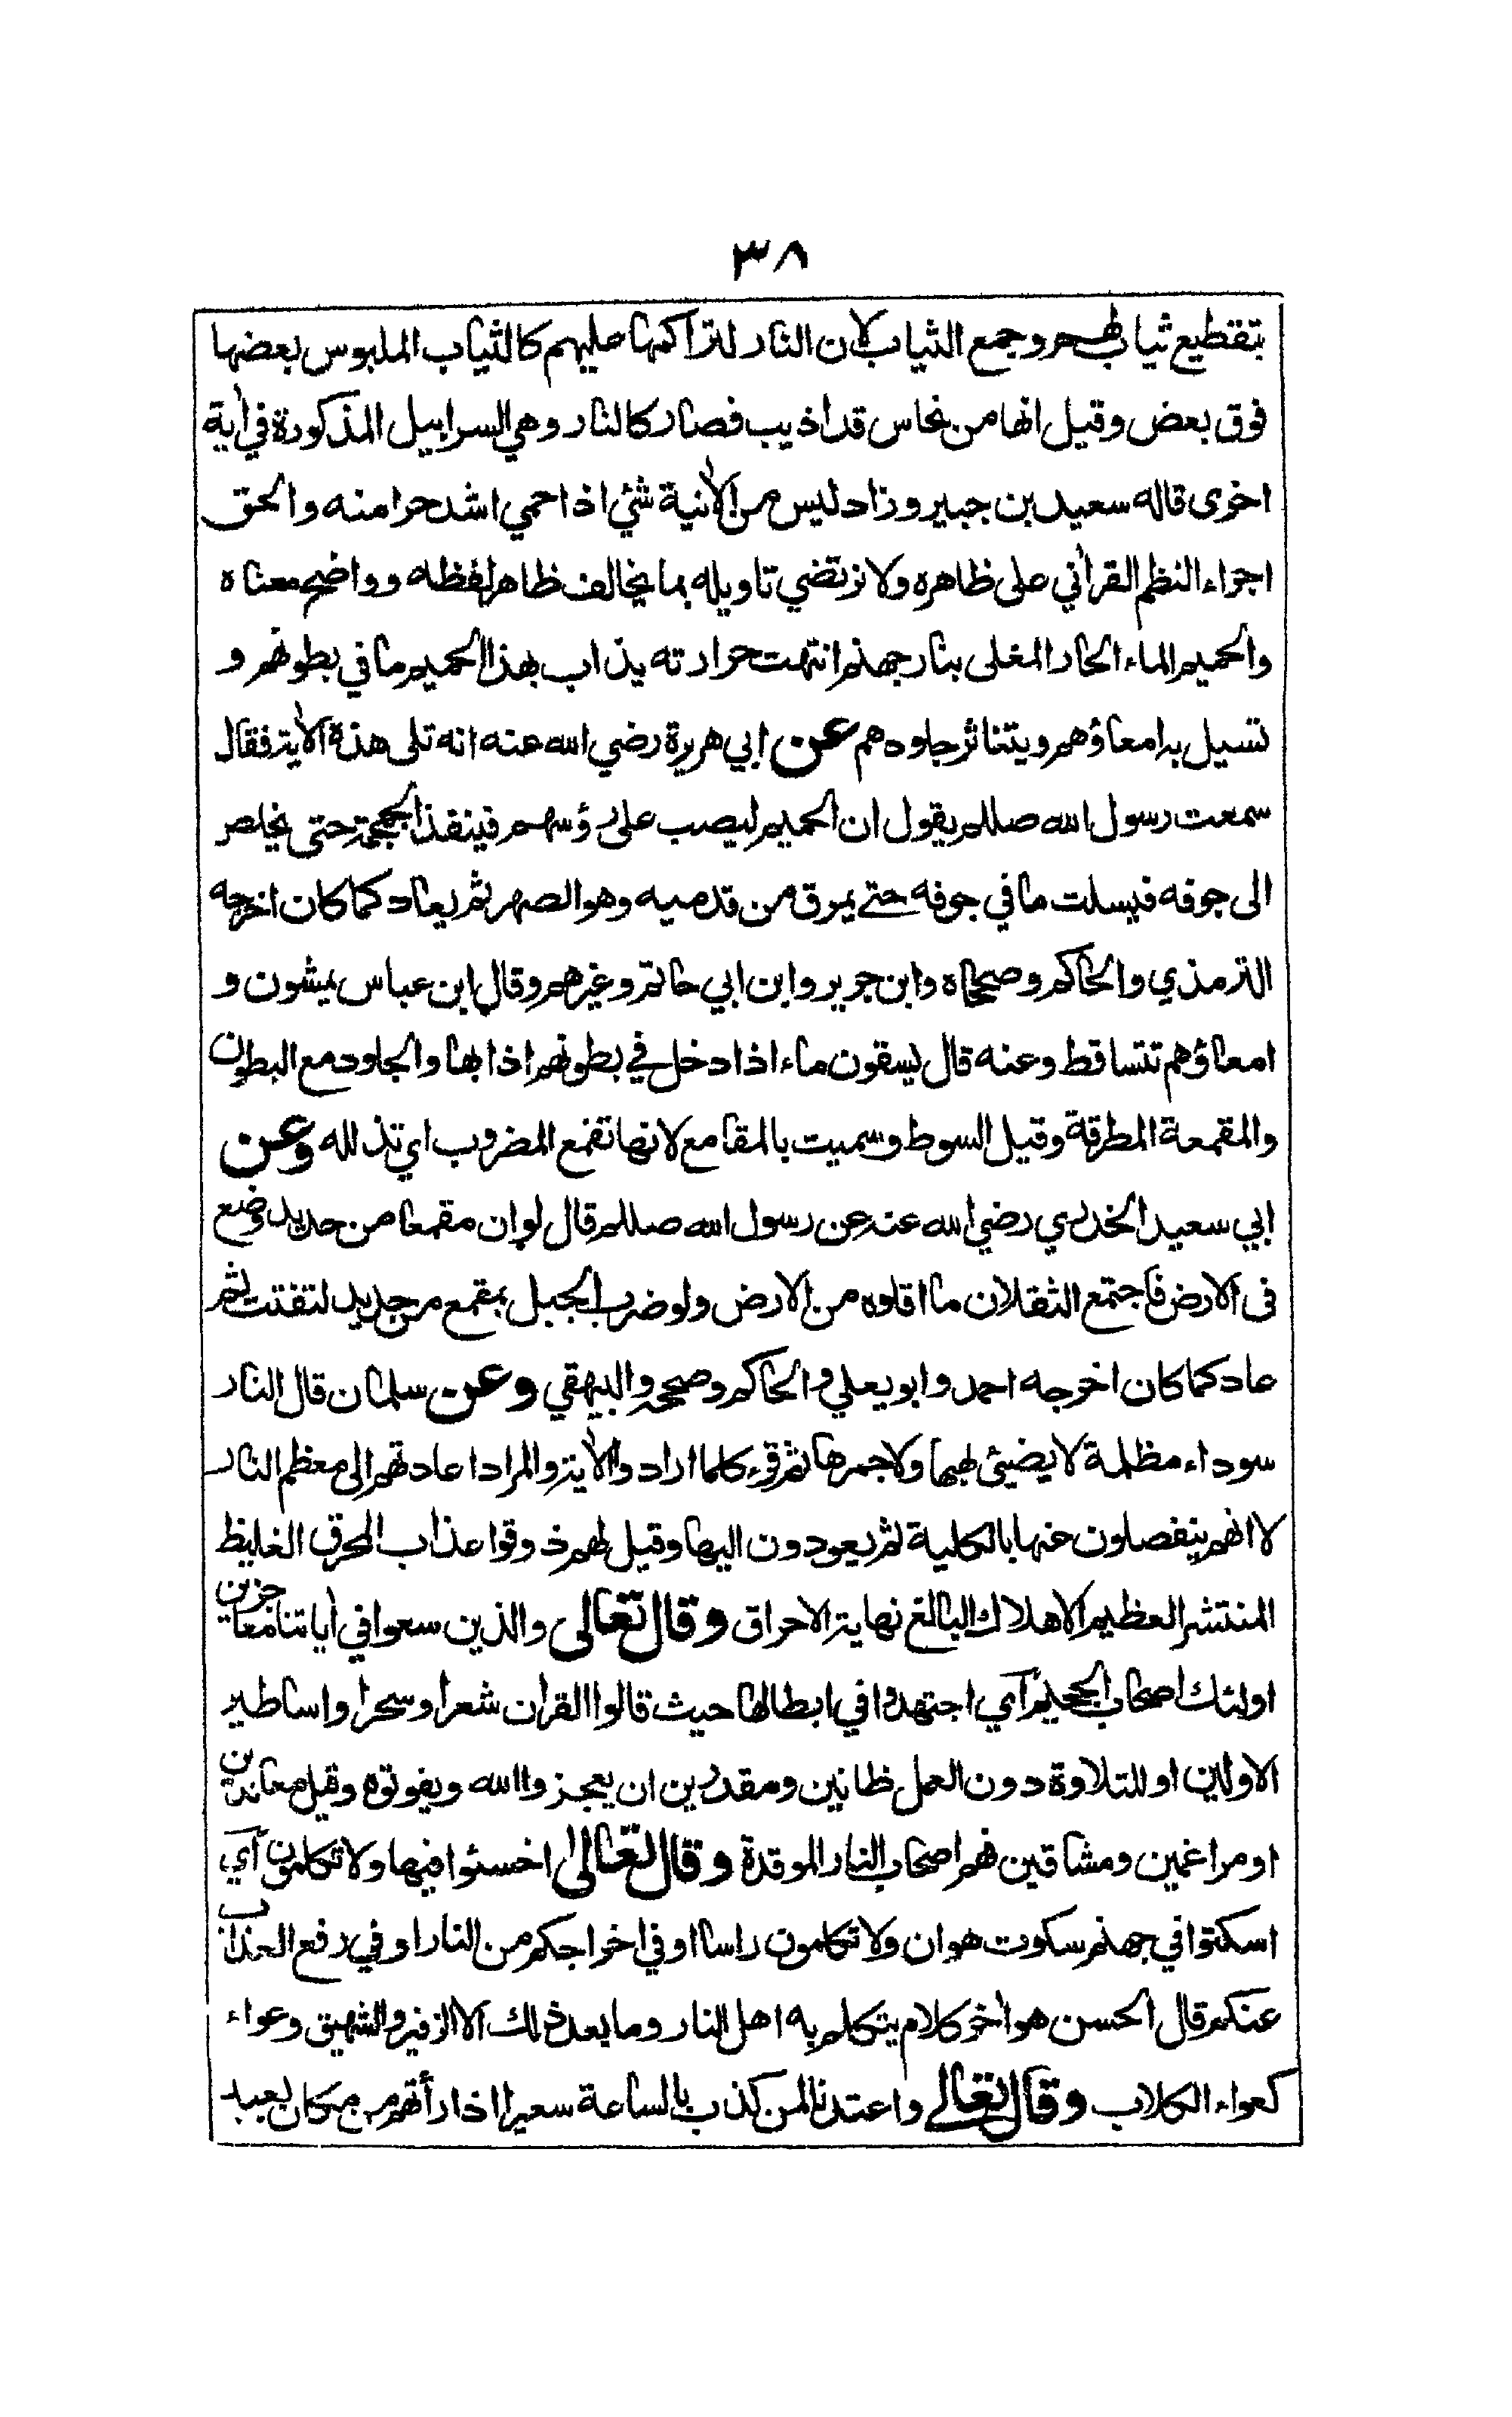 ٣٨
بتقطيع ثياب لهم وجمع الثياب لان النار لتراكمها عليهم كالثياب الملبوس بعضها
فوق بعض وقيل انها من نحاس قد اذيب فصار كالنار وهي السرابيل المذكورة في أية
اخرى قاله سعيد بن جبير وزاد ليس من الأنية شئ اذا حمي اشد حرا منه والحق
اجراء النظم القرأني على ظاهره ولا نرتضي تاويله بما يخالف ظاهر لفظه وواضح معناه
والحميم الماء الحار المغلى بنار جهنم انتهت حرارته يذاب بهذا الحميم ما في بطونهم و
تسيل به امعاؤهم ويتناثر جلودهم عن ابي هريرة رضي الله عنه انه تلى هذه الأية فقال
سمعت رسول الله صللم يقول ان الحميم ليصب على رؤسهم فينفذ الجمجمة حتى يخلص
الى جوفه فيسلت ما في جوفه حتے يمرق من قدميه وهو الصهر ثم يعاد كما كان اخرجه
الترمذي والحاكم وصححاه وابن جرير وابن ابي حاتم وغيرهم وقال ابن عباس يمشون و
امعاؤهم تتساقط وعنه قال يسقون ماء اذا دخل في بطونهم اذابها والجلود مع البطون
والمقمعة المطرقة وقيل السوط وسميت بالمقامع لانها تقمع المضروب اي تذلله وعن
ابي سعيد الخدري رضي الله عنه عن رسول الله صللم قال لو ان مقمعا من حديد وضع
فى الارض فاجتمع الثقلان ما اقلوه من الارض ولو ضرب الجبل بمقمع من حديد لتفتت ثم
عاد كما كان اخرجه احمد وابو يعلي والحاكم وصححه والبيهقي وعن سلمان قال النار
سوداء مظلمة لا يضيئ لهبها ولا جمرها ثم قرء كلما ارادوا الأية والمراد اعادتهم الى معظم النار
لا انهم ينفصلون عنها بالكلية ثم يعودون اليها وقيل لهم ذوقوا عذاب المحرق الغليظ
المنتشر العظيم الاهلاك البالغ نهاية الاحراق وقال تعالى والذين سعوا في أياتنا معاجزين
اولئك اصحاب الجحيم آي اجتهدوا في ابطالها حيث قالوا القران شعر او سحر او اساطير
الاولين او للتلاوة دون العمل ظانين ومقدرين ان يعجزوا الله ويفوتوه وقيل معاندين
او مراغمين ومشاقين فهم اصحاب النار الموقدة وقال تعالى اخسئوا فيها ولا تكلمون آي
اسكتوا في جهنم سكوت هوان ولا تكلمون راسا او في اخراجكم من النار او في رفع العذاب
عنكم قال الحسن هو أخر كلام يتكلم به اهل النار وما بعد ذلك الا الزفير والشهيق وعواء
كعواء الكلاب وقال تعالے واعتدنا لمن كذب بالساعة سعيرا اذا رأتهم من مكان بعيد